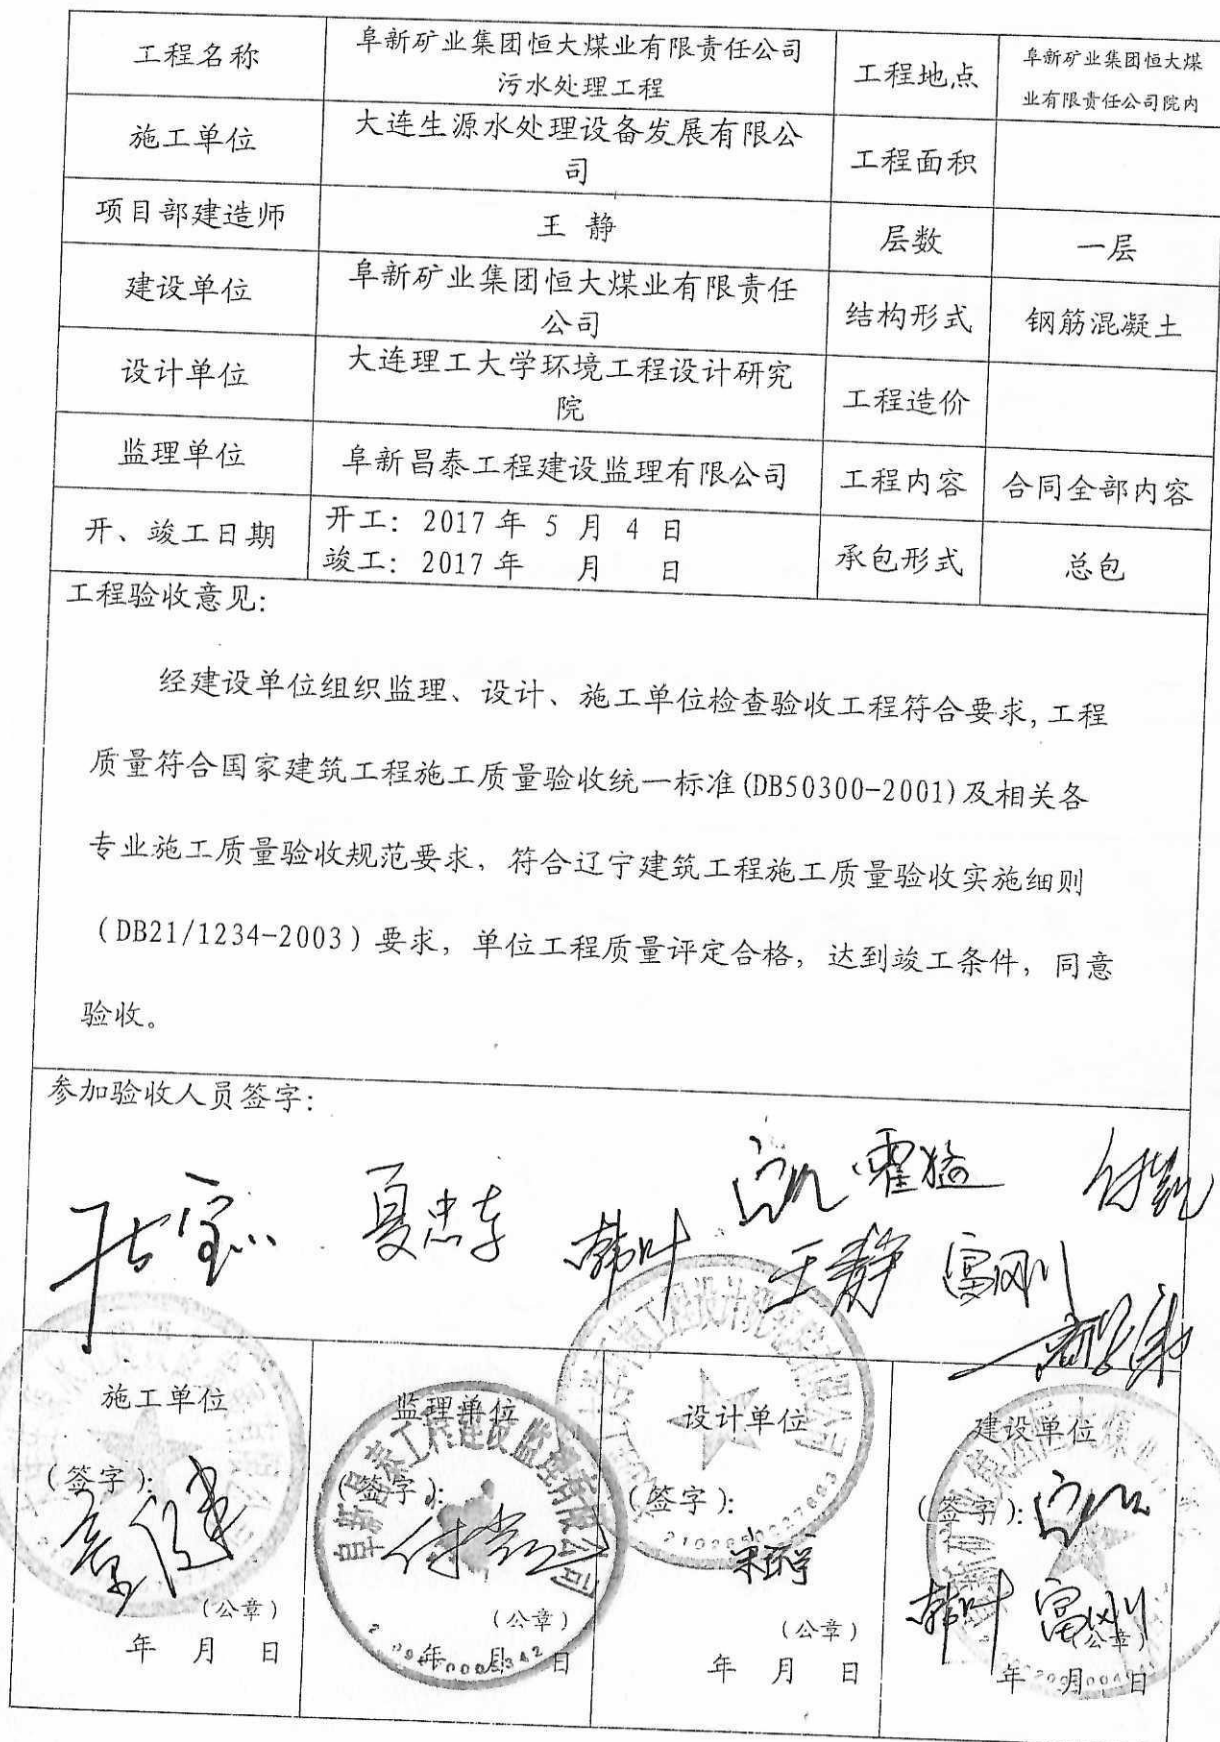 工程名称
阜新矿业集团恒大煤业有限责任公司
污水处理工程
工程地点
阜新矿业集团恒大煤
业有限责任公司院内
施工单位
大连生源水处理设备发展有限公
司
工程面积
项目部建造师
王 静
层数
一层
建设单位
阜新矿业集团恒大煤业有限责任
公司
结构形式
钢筋混凝土
设计单位
大连理工大学环境工程设计研究
院
工程造价
监理单位
阜新昌泰工程建设监理有限公司
工程内容
合同全部内容
开、竣工日期
开工: 2017 年 5 月 4 日
竣工: 2017 年 月 日
承包形式
总包
工程验收意见:
经建设单位组织监理、设计、施工单位检查验收工程符合要求,工程
质量符合国家建筑工程施工质量验收统一标准(DB50300-2001)及相关各
专业施工质量验收规范要求, 符合辽宁建筑工程施工质量验收实施细则
(DB21/1234-2003)要求, 单位工程质量评定合格, 达到竣工条件, 同意
验收。
参加验收人员签字:
夏忠东
韩叶
霍猛
付凯
王静
富刚
施工单位
(签字):
(公章)
年 月 日
监理单位
(签字):
阜新昌泰工程建设监理有限公司
(公章)
年 月 日
设计单位
(签字):
(公章)
年 月 日
建设单位
(签字):
韩叶
富刚
(公章)
年 月 日